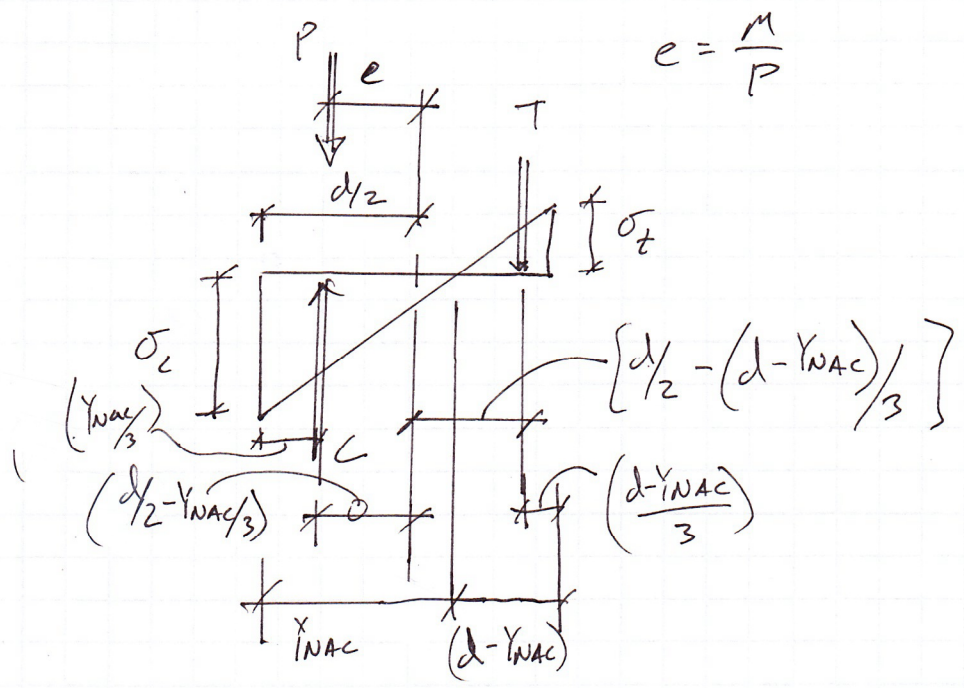 P
e
e = M/P
T
d/2
σt
σc
[d/2 - (d - YNAC)/3]
(YNAC/3)
C
(d/2 - YNAC/3)
(d - YNAC/3)
YNAC
(d - YNAC)